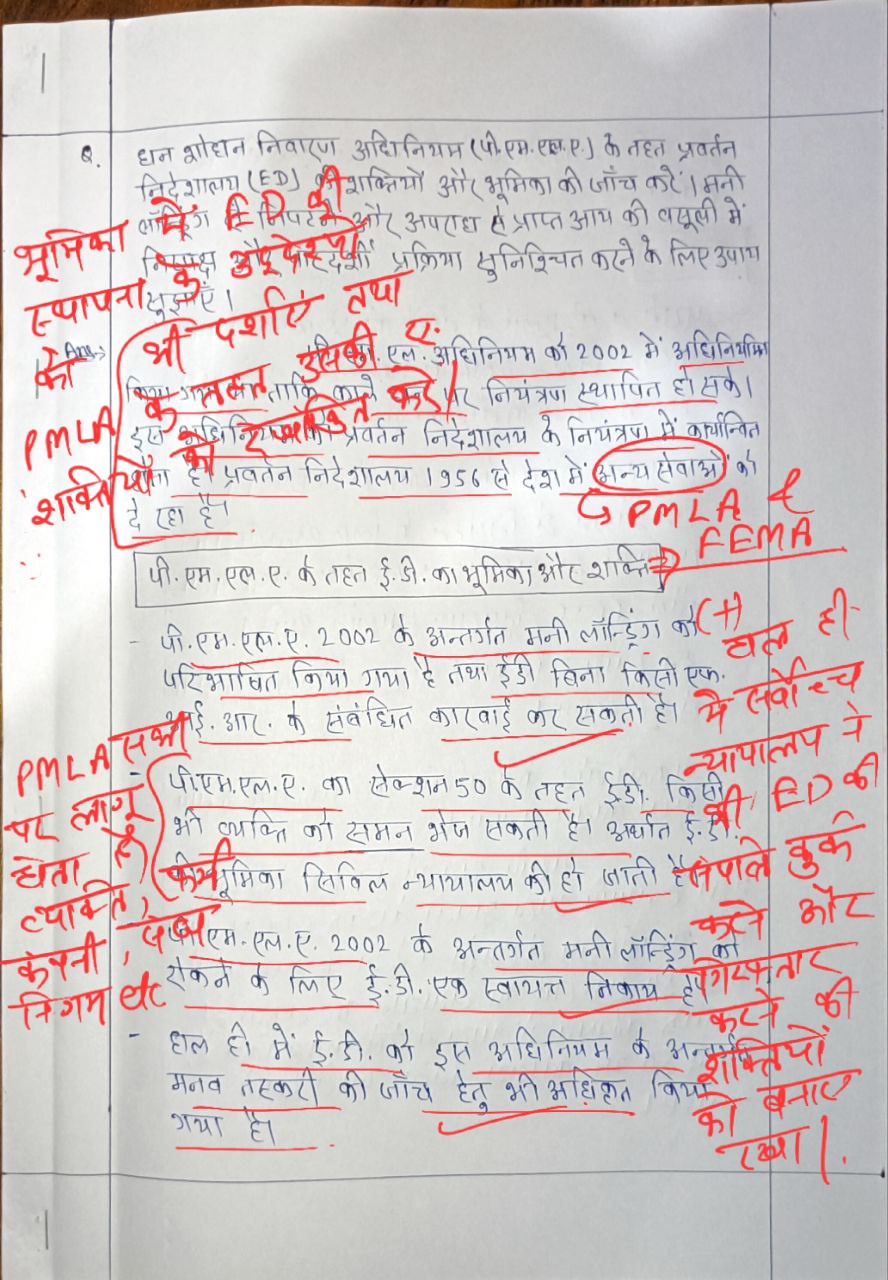 Q. धन शोधन निवारण अधिनियम (पी.एम.एल.ए.) के तहत प्रवर्तन
निदेशालय (ED) की शक्तियों और भूमिका की जाँच करें। मनी
लॉन्ड्रिंग से निपटने और अपराध से प्राप्त आय की वसूली में
निष्पक्ष और पारदर्शी प्रक्रिया सुनिश्चित करने के लिए उपाय
सुझाएँ।
भूमिका में ED की
स्थापना के उद्देश्यों
को
भी दर्शाएं तथा
PMLA के तहत इसकी
शक्तियों को रेखांकित करें।
Ans→ एल. अधिनियम को 2002 में अधिनियमित
किया गया ताकि काले पर नियंत्रण स्थापित हो सके।
इस अधिनियम को प्रवर्तन निदेशालय के नियंत्रण में कार्यान्वित
है। प्रवर्तन निदेशालय 1956 से देश में अन्य सेवाओं को
दे रहा है।
PMLA &
FEMA
पी.एम.एल.ए. के तहत ई.डी. का भूमिका और शक्ति
- पी.एम.एल.ए. 2002 के अन्तर्गत मनी लॉन्ड्रिंग को
परिभाषित किया गया है तथा ईडी बिना किसी एफ.
आई.आर. के संबंधित कारवाई कर सकती है।
- पी.एम.एल.ए. का सेक्शन 50 के तहत ई.डी. किसी
भी व्यक्ति को समन भेज सकती है। अर्थात ई.डी.
की भूमिका सिविल न्यायालय की हो जाती है।
पी.एम.एल.ए. 2002 के अन्तर्गत मनी लॉन्ड्रिंग को
रोकने के लिए ई.डी. एक स्वायत्त निकाय है।
- हाल ही में ई.डी. को इस अधिनियम के अन्तर्गत
मानव तस्करी की जाँच हेतु भी अधिकृत किया
गया है।
PMLA सभी
पर लागू
होता है
व्यक्ति,
कंपनी,
निगम etc
(+)
हाल ही
में सर्वोच्च
न्यायालय ने
भी ED की
करने और
गिरफ्तार
करने की
शक्तियों
को बनाए
रखा।